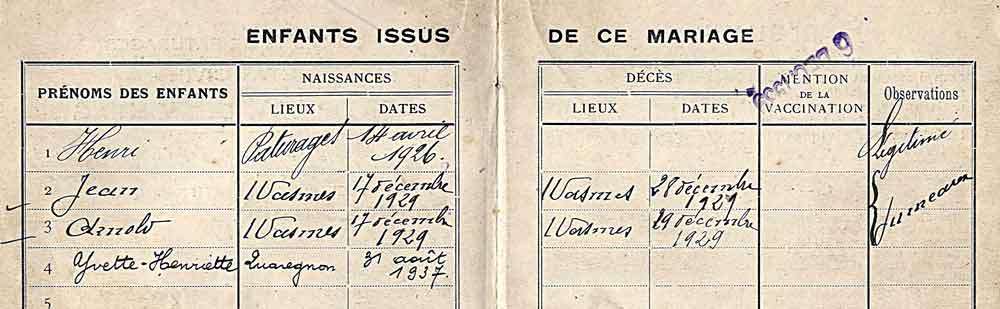 ENFANTS ISSUS DE CE MARIAGE
PRÉNOMS DES ENFANTS
NAISSANCES
LIEUX
DATES
DÉCÈS
LIEUX
DATES
MENTION
DE LA
VACCINATION
Observations
1 Henri Pâturages 14 avril
1926. Légitimé
2 Jean Wasmes 17 décembre
1929 Wasmes 28 décembre
1929 Jumeaux
3 Arnold Wasmes 17 décembre
1929 Wasmes 29 décembre
1929
4 Yvette-Henriette Quaregnon 31 août
1937.
5